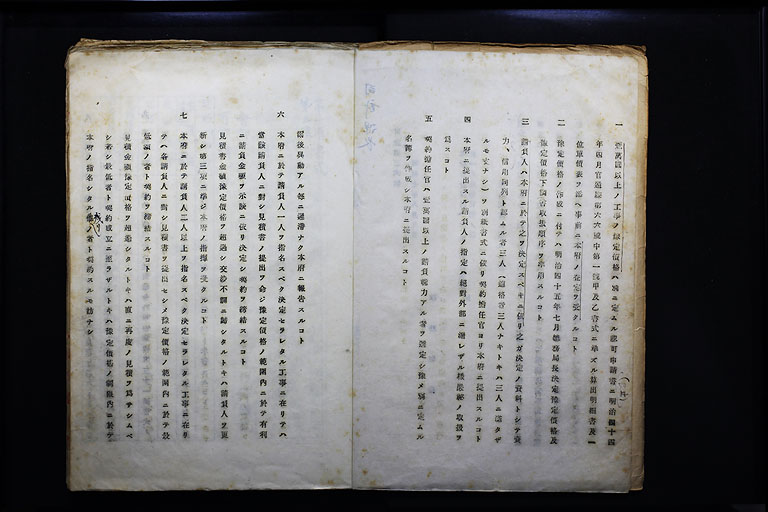 一 壹萬圓以上ノ工事ヲ豫定價格ハ別ニ定ムル認可申請書ニ明治四十四
年四月官通牒第六六號中第一號甲及乙書式ニ準ズル算出明細書及
位單價表ヲ添ヘ事前ニ本府ノ査定ヲ受クルコト
二 豫定價格ノ作成ニ付テハ明治四十五年七月總務局長決定豫定價格及
豫定價格下調書取扱順序ヲ準用スルコト
三 請負人ハ本府ニ於テ之ヲ決定スベキニ依リ之ガ決定ノ資料トシテ資
力、信用調列ト認ムル者三人(適格者三人ナキトキハ三人ニ滿タザ
ルモ妨ナシ)ヲ別紙書式ニ依リ契約擔任官ヨリ本府ニ提出スルコト
四 本府ニ提出スル請負人ノ指定ハ絕對外部ニ洩レザル樣嚴祕ノ取扱ヲ
爲スコト
五 契約擔任官ハ壹萬圓以上ノ請負能力アル者ヲ選定シ豫メ別ニ定ムル
名簿ヲ作成シ本府ニ提出スルコト
爾後異動アル每ニ遲滯ナク本府ニ報告スルコト
六 本府ニ於テ請負人一人ヲ指名スベク決定セラレタル工事ニ在リテハ
當該請負人ニ對シ見積書ノ提出ヲ命ジ豫定價格ノ範圍內ニ於テ有利
ニ請負金額ヲ示談ニ依リ決定シ契約ヲ締結スルコト
見積書金額豫定價格ヲ超過シ交涉不調ニ歸シタルトキハ請負人ヲ更
新シ第三項ニ準ジ本府ノ指揮ヲ受クルコト
七 本府ニ於テ請負人二人以上ヲ指名スベク決定セラレタル工事ニ在リ
テハ各請負人ニ對シ見積書ヲ提出セシメ豫定價格ノ範圍內ニ於テ最
低額ノ者ト契約ヲ締結スルコト
見積金額豫定價格ヲ超過シタルトキハ直ニ再度ノ見積ヲ爲サシムベ
シ若シ最低者ト契約成立ニ至ラザルトキハ豫定價格ノ制限內ニ於テ
本府ノ指名シタル他ノ者ト契約スルモ妨ナシ